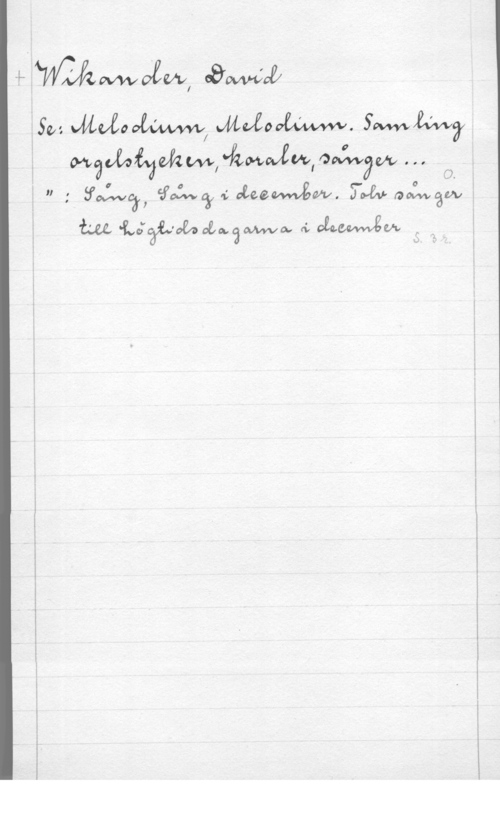 + Wikander, David
Se: Melodium, Melodium. Samling
orgelstycken, koraler, sånger ...
O.
" : Sång, Sång i december. Tolv sånger
till högtidsdagarna i december
S. 3 r.